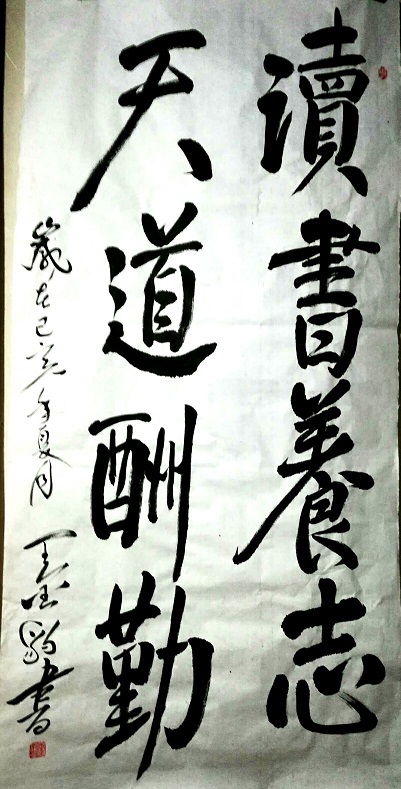 讀書養志
天道酬勤
歲在己亥年夏月
王國豹書